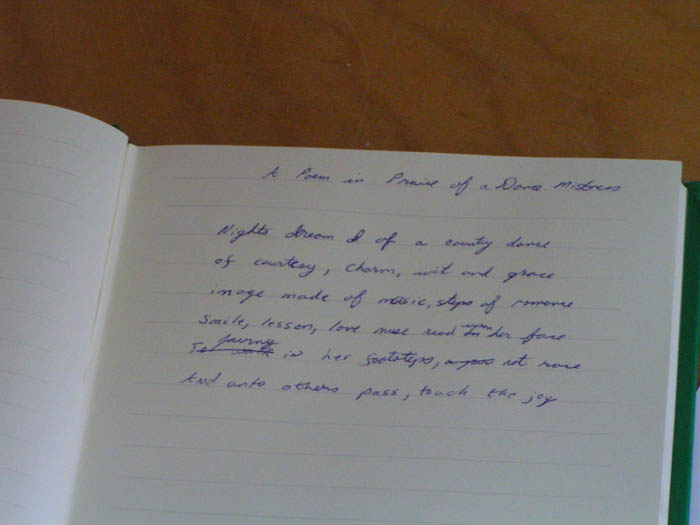 A Poem in Praise of a Dance Mistress
Nights dream I of a country dance
of courtesy, charm, wit and grace
image made of music, steps of romance
Smile, lesson, love muse read upon her face
journey in her footsteps, not race
And unto others pass, teach the joy